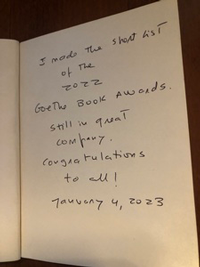 I made the short list
of the
2022
Goethe Book Awards.
still in great
company.
Congratulations
to all!
January 4, 2023